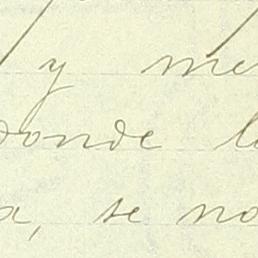 y me
donde l
a, se no